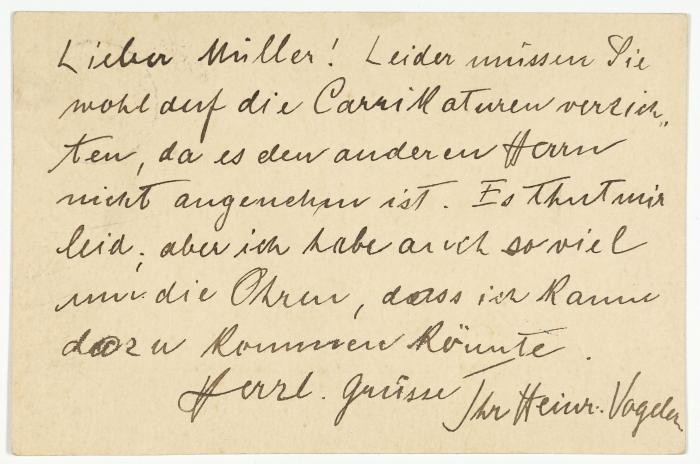 Lieber Müller! Leider müssen Sie
wohl auf die Carrikaturen verzich-
ten, da es den anderen Herrn
nicht angenehm ist. Es thut mir
leid; aber ich habe auch so viel
um die Ohren, dass ich kaum
dazu kommen könnte.
Herzl. Grüsse Ihr Heinr. Vogeler